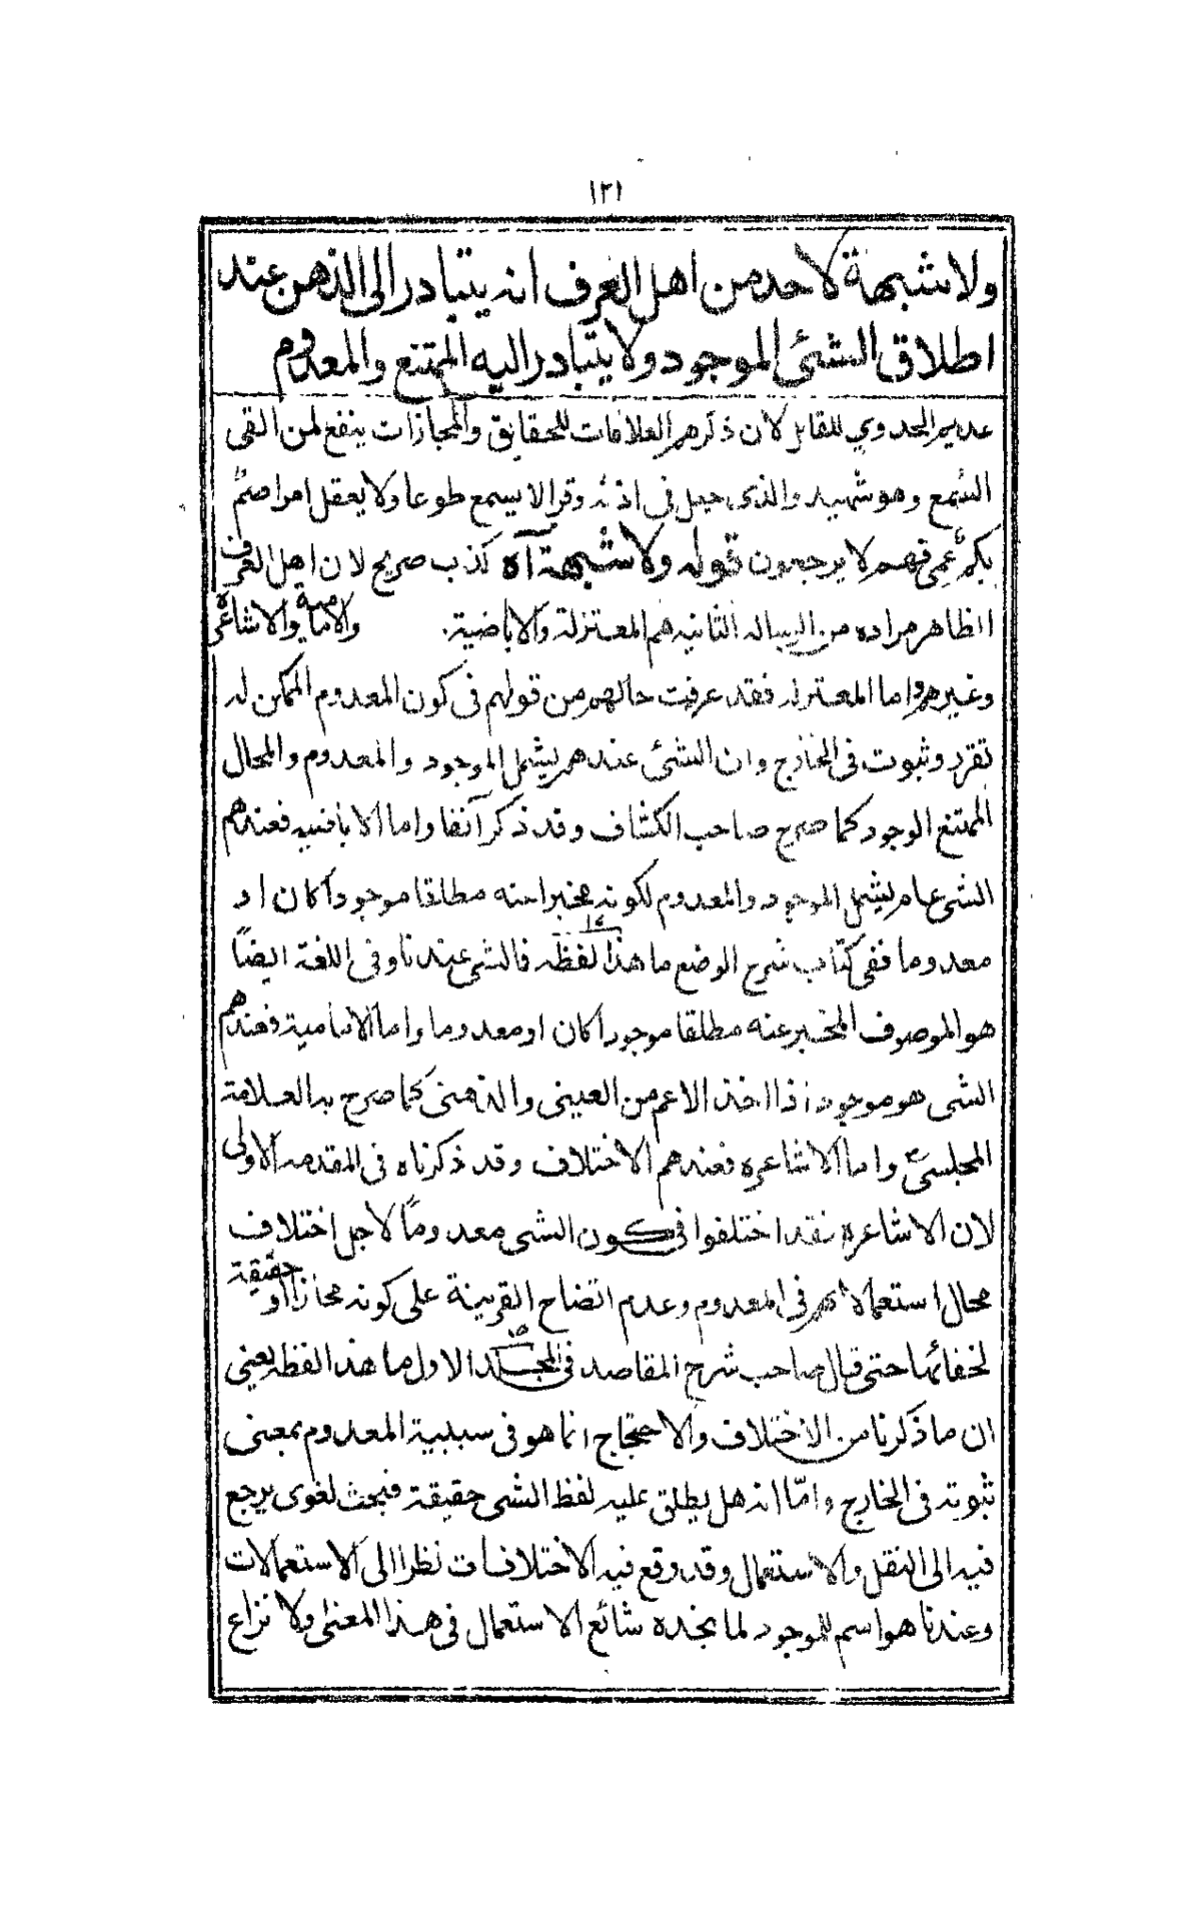 ١٢١
ولا شبهة لاحد من اهل العرف انه يتبادر الى الذهن عند
اطلاق الشئ الموجود ولا يتبادر اليه الممتنع والمعدوم
عديم الجدوي للقابل لان ذكرهم العلاقات للحقايق والمجازات ينفع لمن القى
السمع وهو شهيد والذى جعل فى اذنه وقرا لا يسمع طوعا ولا يعقل امرا صمٌ
بكم عمى فهم لا يرجعون قوله ولا شبهة آه كذب صريح لان اهل العرف
الظاهر مراده من الرساله الثانيه هم المعتزلة والاباضية والامامية والاشاعره
وغيرهم واما المعتزله فقد عرفت حالهم من قولهم فى كون المعدوم الممكن له
تقرر وثبوت فى الخارج وان الشئ عندهم يشمل الموجود والمعدوم والمحال
الممتنع الوجود كما صرح صاحب الكشاف وقد ذكر آنفا واما الاباضيه فعندهم
الشى عام يشمل الموجود والمعدوم لكونه مخبرا عنه مطلقا موجودا كان او
معدوما ففى كتاب شرح الوضع ما هذا لفظه فالشى عندنا وفى اللغة ايضًا
هو الموصوف المخبر عنه مطلقا موجودا كان او معدوما واما الامامية فعندهم
الشى هو موجود اذا اخذ الاعم من العينى والذهنى كما صرح به العلامة
المجلسى واما الاشاعره فعندهم الاختلاف وقد ذكرناه فى المقدمه الاولى
لان الاشاعره فقد اختلفوا فى كون الشى معدومًا لاجل اختلاف
محال استعمالاتهم فى المعدوم وعدم اتضاح القرينة على كونه مجازا او حقيقة
لخفائها حتى قال صاحب شرح المقاصد فى المجلد الاول ما هذا لفظه يعنى
ان ما ذكرنا من الاختلاف والاحتجاج انما هو فى سببية المعدوم بمعنى
ثبوته فى الخارج وامّا انه هل يطلق عليه لفظ الشى حقيقة فبحث لغوى يرجع
فيه الى النقل والاستعمال وقد وقع فيه الاختلافات نظرا الى الاستعمالات
وعندنا هو اسم للموجود لما نجده شائع الاستعمال فى هذا المعنى ولا نزاع